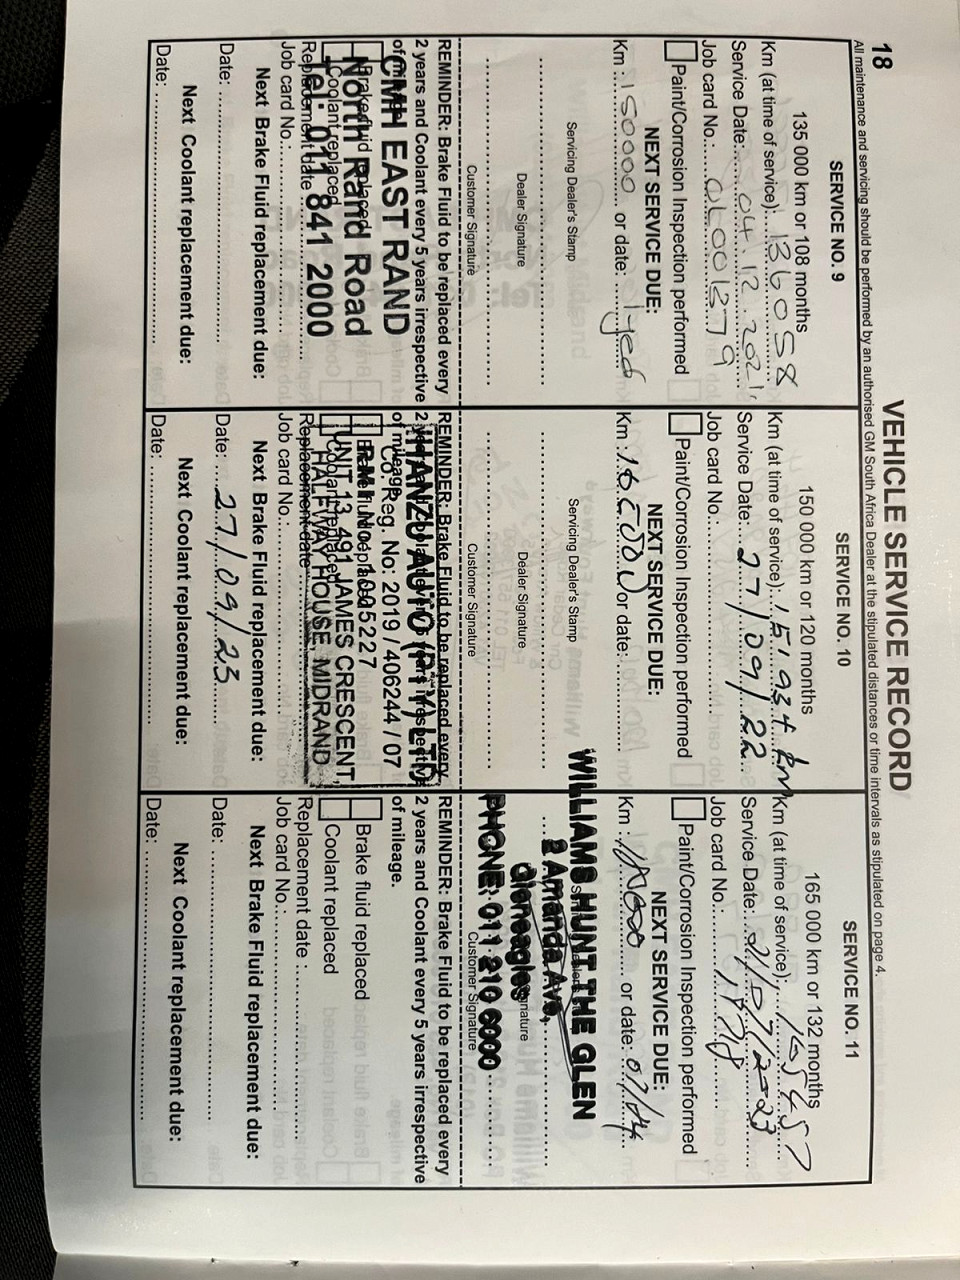 18
VEHICLE SERVICE RECORD
All maintenance and servicing should be performed by an authorised GM South Africa Dealer at the stipulated distances or time intervals as stipulated on page 4.
SERVICE NO. 9
135 000 km or 108 months
Km (at time of service): 136058
Service Date: 04.12.2021.
Job card No.:
Paint/Corrosion Inspection performed
NEXT SERVICE DUE:
Km : 150000 or date: 1year
Servicing Dealer's Stamp
Dealer Signature
Customer Signature
REMINDER: Brake Fluid to be replaced every
2 years and Coolant every 5 years irrespective
of mileage.
CMH EAST RAND
North Rand Road
Tel: 011 841 2000
Brake fluid replaced
Coolant replaced
Replacement date
Job card No.:
Next Brake Fluid replacement due:
Date:
Next Coolant replacement due:
Date:
SERVICE NO. 10
150 000 km or 120 months
Km (at time of service): km
Service Date: 27/09/22
Job card No.:
Paint/Corrosion Inspection performed
NEXT SERVICE DUE:
Km or date:
Servicing Dealer's Stamp
Dealer Signature
Customer Signature
REMINDER: Brake Fluid to be replaced every
of mileage.
AUTO (PTY) LTD
Co. Reg. No: 2019 / 406244 / 07
1005227
UNIT 13, 491 JAMES CRESCENT,
HALFWAY HOUSE, MIDRAND
Replacement date
Job card No.:
Next Brake Fluid replacement due:
Date: 27/09/23
Next Coolant replacement due:
Date:
SERVICE NO. 11
165 000 km or 132 months
Km (at time of service): 165457
Service Date: 21/07/2023
Job card No.:
Paint/Corrosion Inspection performed
NEXT SERVICE DUE:
Km : or date: 07/24
WILLIAMS HUNT THE GLEN
2 Amanda Ave,
Gleneagles
PHONE: 011 210 6000
Customer Signature
REMINDER: Brake Fluid to be replaced every
2 years and Coolant every 5 years irrespective
of mileage.
Brake fluid replaced
Coolant replaced
Replacement date :
Job card No.:
Next Brake Fluid replacement due:
Date:
Next Coolant replacement due:
Date: